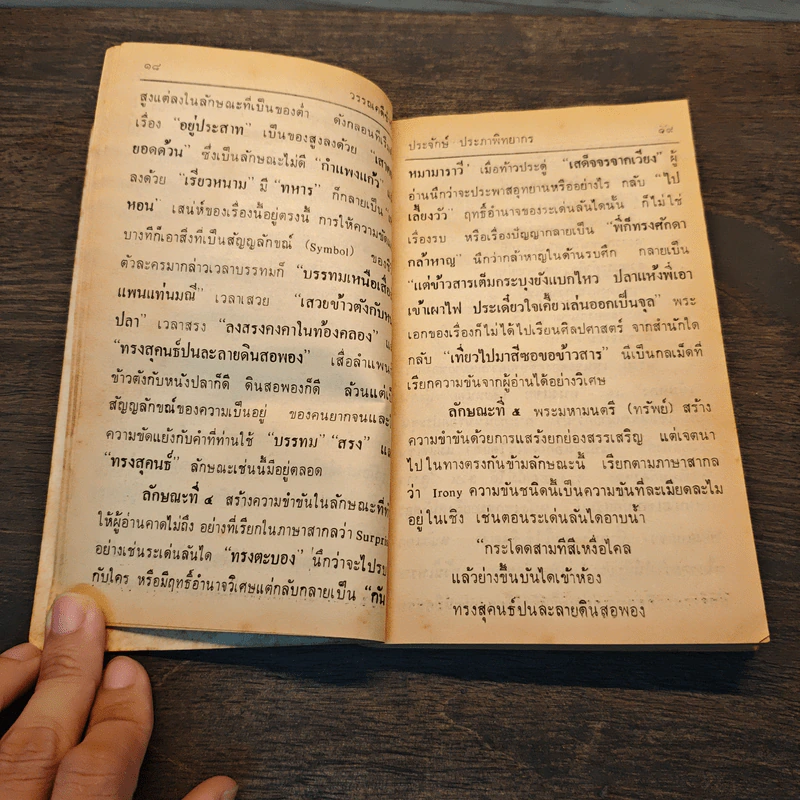 ๑๘
วรรณคดี
สูงแต่ลงในลักษณะที่เป็นของต่ำ ดังกลอนที่เริ่ม
เรื่อง "อยู่ประสาท" เป็นของสูงลงด้วย "เสา
ยอดด้วน" ซึ่งเป็นลักษณะไม่ดี "กำแพงแก้ว"
ลงด้วย "เรียวหนาม" มี "ทหาร" ก็กลายเป็น
หอน" เสน่ห์ของเรื่องนี้อยู่ตรงนี้ การให้ความขัด
บางทีก็เอาสิ่งที่เป็นสัญญลักขณ์ (Symbol) ของ
ตัวละครมากล่าวเวลาบรรทมก็ "บรรทมเหนือเสื่อ
แพนแท่นมณี" เวลาเสวย "เสวยข้าวตังกับห
ปลา" เวลาสรง "ลงสรงคงคาในท้องคลอง"
"ทรงสุคนธ์ปนละลายดินสอพอง" เสื่อลำแพน
ข้าวตังกับหนังปลาก็ดี ดินสอพองก็ดี ล้วนแต่
สัญญลักขณ์ของความเป็นอยู่ ของคนยากจนและ
ความขัดแย้งกับคำที่ท่านใช้ "บรรทม" "สรง"
"ทรงสุคนธ์" ลักษณะเช่นนี้มีอยู่ตลอด
ลักษณะที่ ๔ สร้างความขำขันในลักษณะที่ทำ
ให้ผู้อ่านคาดไม่ถึง อย่างที่เรียกในภาษาสากลว่า Surpri
อย่างเช่นระเด่นลันได "ทรงตะบอง" นึกว่าจะไปรบ
กับใคร หรือมีฤทธิ์อำนาจวิเศษแต่กลับกลายเป็น "กัน
ประจักษ์ ประภาพิทยากร
๑๙
หมามาราวี" เมื่อท้าวประดู่ "เสด็จจรจากเวียง" ผู้
อ่านนึกว่าจะประพาสอุทยานหรืออย่างไร กลับ "ไป
เลี้ยงวัว" ฤทธิ์อำนาจของระเด่นลันไดนั้น ก็ไม่ใช่
เรื่องรบ หรือเรื่องปัญญากลายเป็น "พี่ก็ทรงศักดา
กล้าหาญ" นึกว่ากล้าหาญในด้านรบศึก กลายเป็น
"แต่ข้าวสารเต็มกระบุงยังแบกไหว ปลาแห้งพี่เอา
เข้าเผาไฟ ประเดี๋ยวใจเคี้ยวเล่นออกเป็นจุล" พระ
เอกของเรื่องก็ไม่ได้ไปเรียนศิลปศาสตร์ จากสำนักใด
กลับ "เที่ยวไปมาสีซอขอข้าวสาร" นี่เป็นกลเม็ดที่
เรียกความขันจากผู้อ่านได้อย่างวิเศษ
ลักษณะที่ ๕ พระมหามนตรี (ทรัพย์) สร้าง
ความขำขันด้วยการแสร้งยกย่องสรรเสริญ แต่เจตนา
ไปในทางตรงกันข้ามลักษณะนี้ เรียกตามภาษาสากล
ว่า Irony ความขันชนิดนี้เป็นความขันที่ละเมียดละไม
อยู่ในเชิง เช่นตอนระเด่นลันไดอาบน้ำ
"กระโดดสามทีสีเหงื่อไคล
แล้วย่างขึ้นบันไดเข้าห้อง
ทรงสุคนธ์ปนละลายดินสอพอง